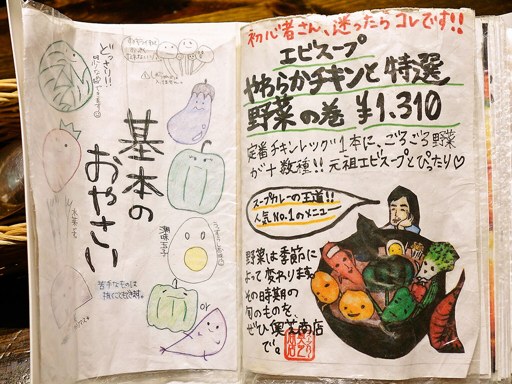 初心者さん、迷ったらコレです!!
エビスープ
やわらかチキンと特選
野菜の巻 ¥1,310
定番チキンレッグ1本に、ごろごろ野菜
が十数種!! 元祖エビスープとぴったり♡
スープカレーの王道!!
人気No.1のメニュー
野菜は季節に
よって変わります。
その時期の
旬のものを、
ぜひ奥芝商店
で。
どっさり!!
基本の
おやさい
味玉子
苦手なものは
or